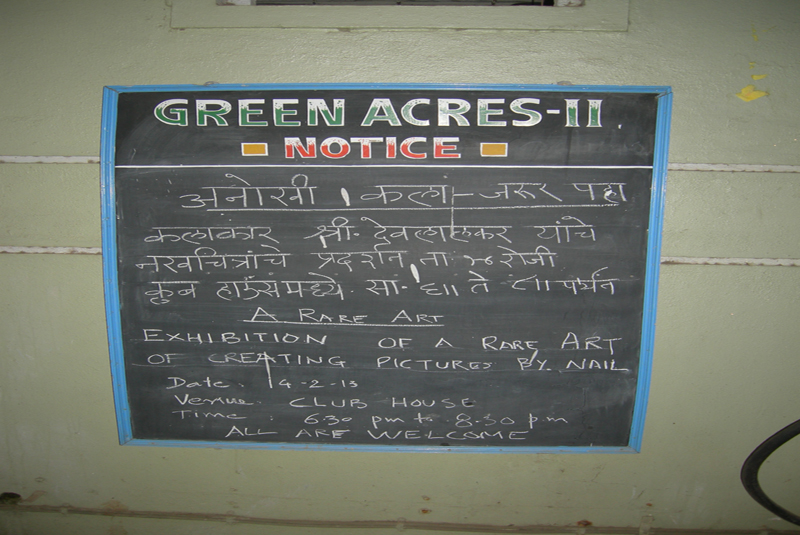 GREEN ACRES-II
NOTICE
अनोखी कला - जरूर पहा
कलाकार श्री. देवलालकर यांचे
नखचित्रांचे प्रदर्शन ता. २४ रोजी
क्लब हाऊसमध्ये. सा. ६॥ ते ८॥ पर्यंत
A RARE ART
EXHIBITION OF A RARE ART
OF CREATING PICTURES BY NAIL
Date. 14-2-13
Venue. CLUB HOUSE
Time : 6.30 pm to 8.30 p.m
ALL ARE WELCOME